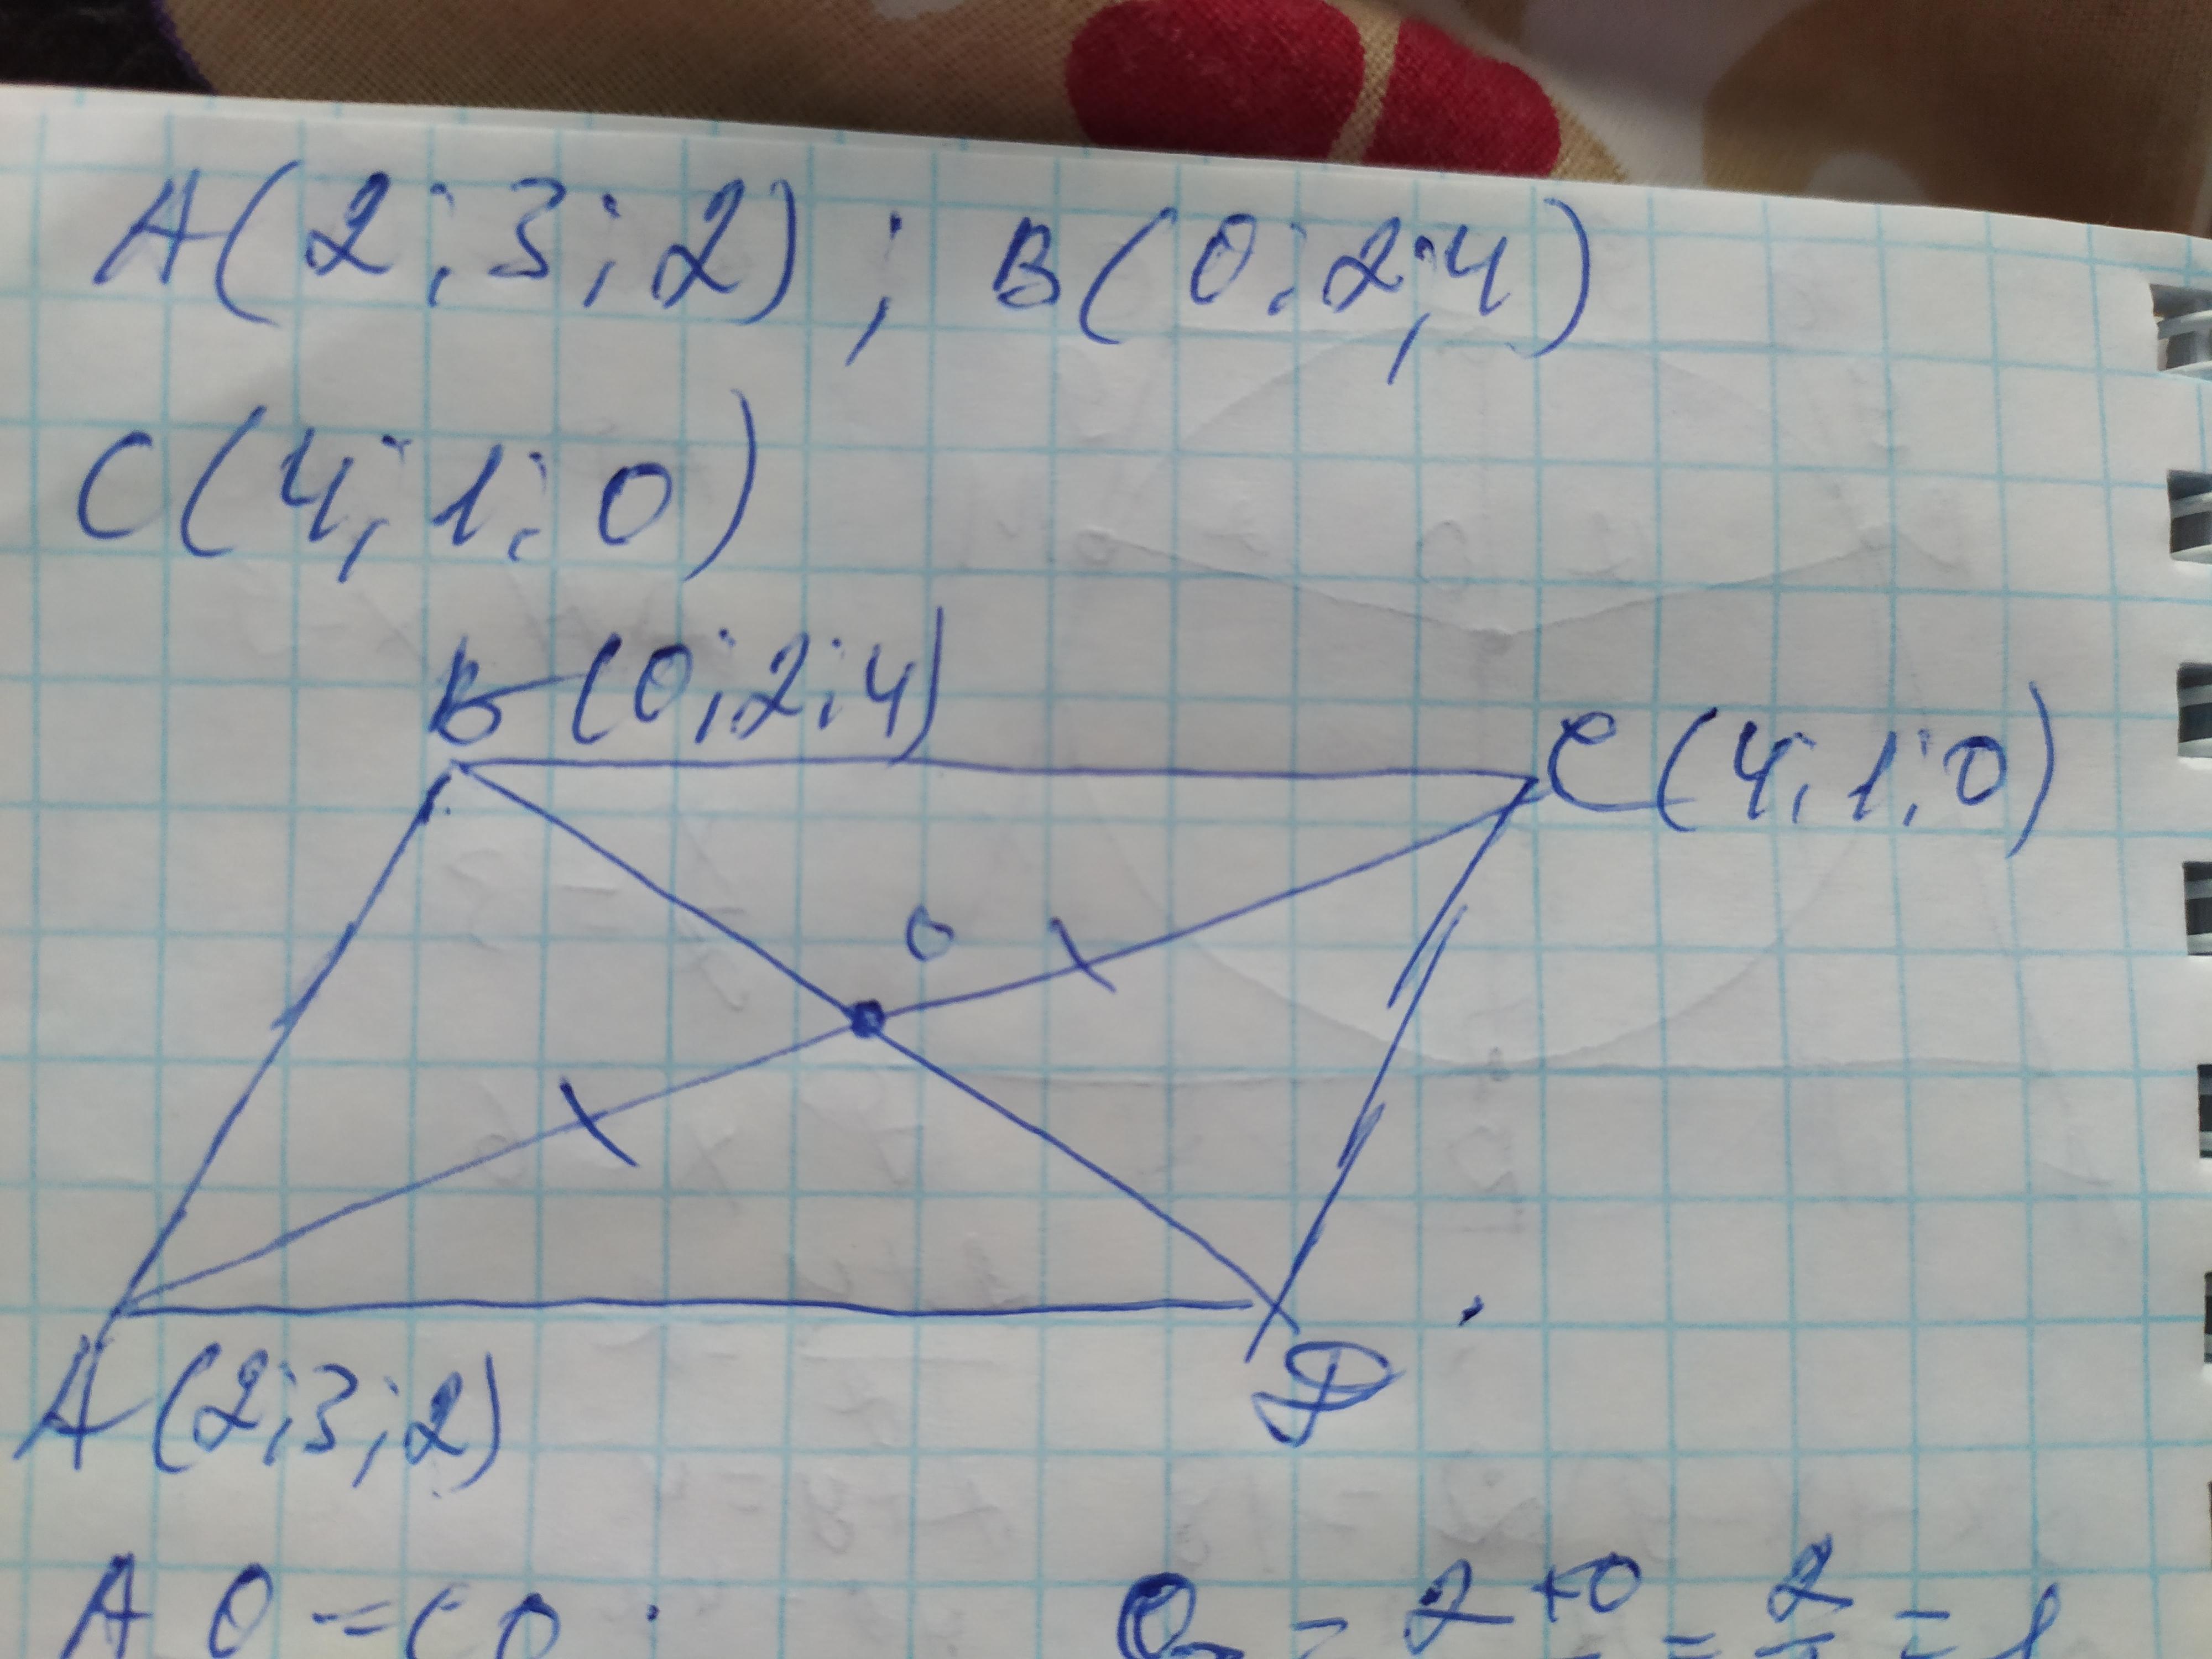 A(2;3;2); B(0;2;4)
C(4;1;0)
B(0;2;4)
C(4;1;0)
O
A(2;3;2)
D
AO=CO. O = 2+0 = 2 = 1